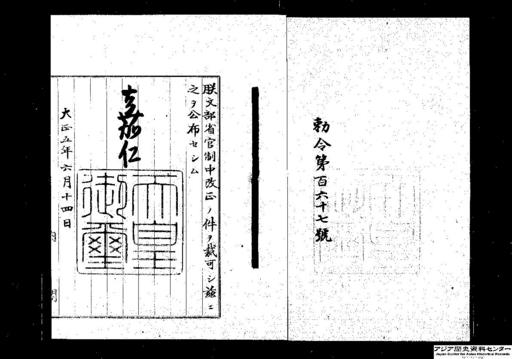 勅令第百六十七號
朕文部省官制中改正ノ件ヲ裁可シ茲ニ
之ヲ公布セシム
嘉仁
天皇
御璽
大正五年六月十四日
内閣
アジア歴史資料センター
Japan Center for Asian Historical Records